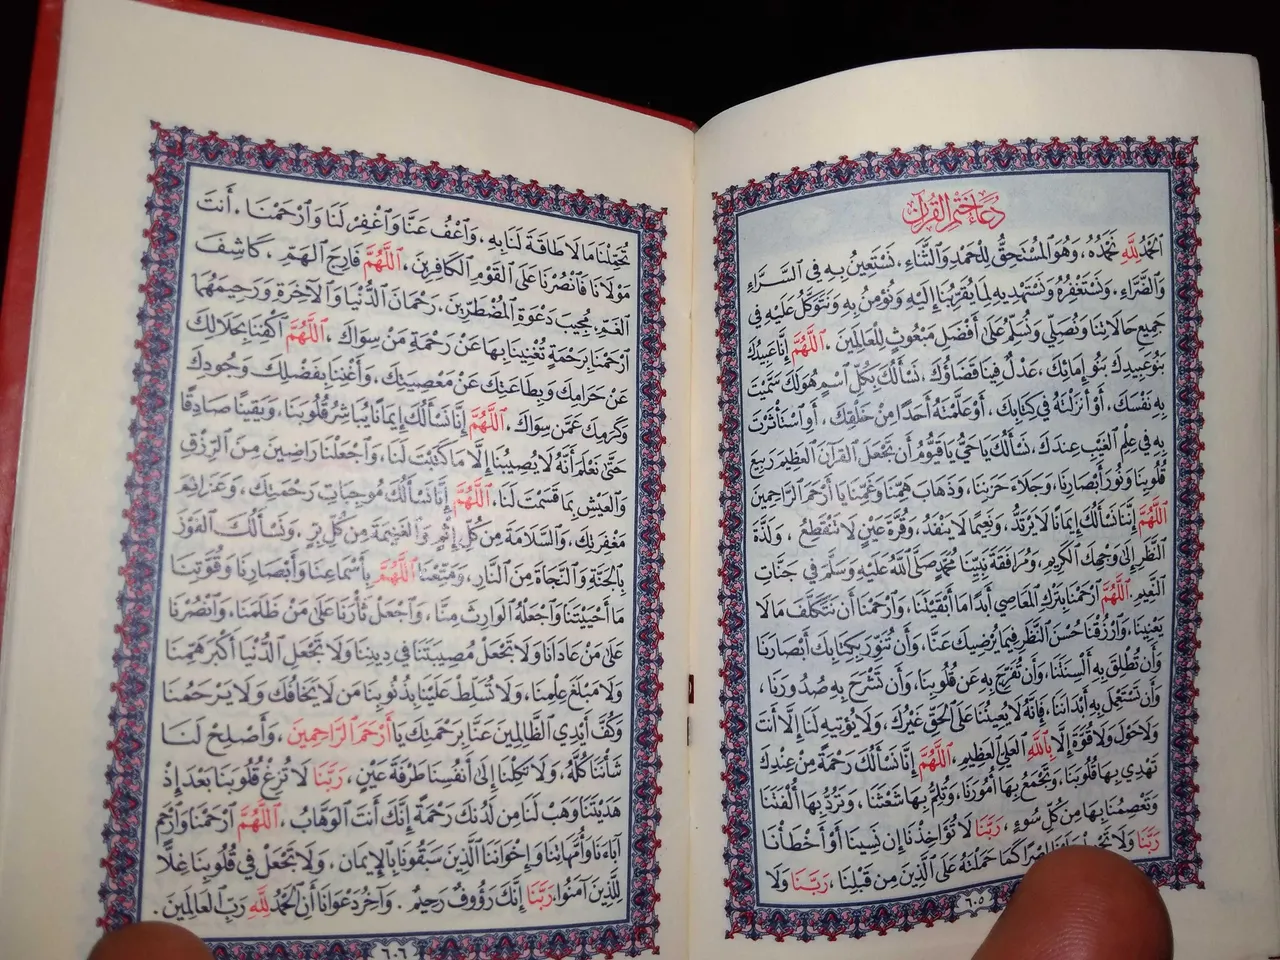 دُعَاءُ خَتْمِ القُرْآنِ
الحَمْدُ لِلَّهِ نَحْمَدُهُ، وَهُوَ المُسْتَحِقُّ لِلْحَمْدِ وَالثَّنَاءِ، نَسْتَعِينُ بِهِ فِي السَّرَّاءِ
وَالضَّرَّاءِ. وَنَسْتَغْفِرُهُ وَنَسْتَهْدِيهِ لِمَا يُقَرِّبُنَا إِلَيْهِ وَنُؤْمِنُ بِهِ وَنَتَوَكَّلُ عَلَيْهِ فِي
جَمِيعِ حَالَاتِنَا وَنُصَلِّي وَنُسَلِّمُ عَلَى أَفْضَلِ مَبْعُوثٍ لِلْعَالَمِينَ. اللَّهُمَّ إِنَّا عَبِيدُكَ
بَنُو عَبِيدِكَ بَنُو إِمَائِكَ، عَدْلٌ فِينَا قَضَاؤُكَ، نَسْأَلُكَ بِكُلِّ اسْمٍ هُوَ لَكَ سَمَّيْتَ
بِهِ نَفْسَكَ، أَوْ أَنْزَلْتَهُ فِي كِتَابِكَ، أَوْ عَلَّمْتَهُ أَحَدًا مِنْ خَلْقِكَ، أَوِ اسْتَأْثَرْتَ
بِهِ فِي عِلْمِ الغَيْبِ عِنْدَكَ، نَسْأَلُكَ يَا حَيُّ يَا قَيُّومُ أَنْ تَجْعَلَ القُرْآنَ العَظِيمَ رَبِيعَ
قُلُوبِنَا وَنُورَ أَبْصَارِنَا، وَجَلَاءَ حَزَنِنَا، وَذَهَابَ هَمِّنَا وَغَمِّنَا يَا أَرْحَمَ الرَّاحِمِينَ
اللَّهُمَّ إِنَّنَا نَسْأَلُكَ إِيمَانًا لَا يَرْتَدُّ، وَنَعِيمًا لَا يَنْفَدُ، وَقُرَّةَ عَيْنٍ لَا تَنْقَطِعُ، وَلَذَّةَ
النَّظَرِ إِلَى وَجْهِكَ الكَرِيمِ، وَمُرَافَقَةَ نَبِيِّنَا مُحَمَّدٍ صَلَّى اللَّهُ عَلَيْهِ وَسَلَّمَ فِي جَنَّاتِ
النَّعِيمِ. اللَّهُمَّ ارْحَمْنَا بِتَرْكِ المَعَاصِي أَبَدًا مَا أَبْقَيْتَنَا، وَارْحَمْنَا أَنْ نَتَكَلَّفَ مَا لَا
يَعْنِينَا، وَارْزُقْنَا حُسْنَ النَّظَرِ فِيمَا يُرْضِيكَ عَنَّا، وَأَنْ تُنَوِّرَ بِكِتَابِكَ أَبْصَارَنَا
وَأَنْ تُطْلِقَ بِهِ أَلْسِنَتَنَا، وَأَنْ تُفَرِّجَ بِهِ عَنْ قُلُوبِنَا، وَأَنْ تَشْرَحَ بِهِ صُدُورَنَا،
وَأَنْ تَسْتَعْمِلَ بِهِ أَبْدَانَنَا، فَإِنَّهُ لَا يُعِينُنَا عَلَى الحَقِّ غَيْرُكَ، وَلَا يُؤْتِيهِ لَنَا إِلَّا أَنْتَ
وَلَا حَوْلَ وَلَا قُوَّةَ إِلَّا بِاللَّهِ العَلِيِّ العَظِيمِ. اللَّهُمَّ إِنَّا نَسْأَلُكَ رَحْمَةً مِنْ عِنْدِكَ
تَهْدِي بِهَا قُلُوبَنَا، وَتَجْمَعُ بِهَا أُمُورَنَا، وَتَلُمُّ بِهَا شَعْثَنَا، وَتَرُدُّ بِهَا أُلْفَتَنَا
وَتَعْصِمُنَا بِهَا مِنْ كُلِّ سُوءٍ، رَبَّنَا لَا تُؤَاخِذْنَا إِنْ نَسِينَا أَوْ أَخْطَأْنَا
رَبَّنَا وَلَا كَمَا حَمَلْتَهُ عَلَى الَّذِينَ مِنْ قَبْلِنَا، رَبَّنَا وَلَا
٦٠٥
تُحَمِّلْنَا مَا لَا طَاقَةَ لَنَا بِهِ، وَاعْفُ عَنَّا وَاغْفِرْ لَنَا وَارْحَمْنَا. أَنْتَ
مَوْلَانَا فَانْصُرْنَا عَلَى القَوْمِ الكَافِرِينَ. اللَّهُمَّ فَارِجَ الهَمِّ، كَاشِفَ
الغَمِّ، مُجِيبَ دَعْوَةِ المُضْطَرِّينَ، رَحْمَانَ الدُّنْيَا وَالآخِرَةِ وَرَحِيمَهُمَا
ارْحَمْنَا بِرَحْمَةٍ تُغْنِينَا بِهَا عَنْ رَحْمَةِ مَنْ سِوَاكَ، اللَّهُمَّ اكْفِنَا بِحَلَالِكَ
عَنْ حَرَامِكَ وَبِطَاعَتِكَ عَنْ مَعْصِيَتِكَ، وَأَغْنِنَا بِفَضْلِكَ وَجُودِكَ
وَكَرَمِكَ عَمَّنْ سِوَاكَ. اللَّهُمَّ إِنَّا نَسْأَلُكَ إِيمَانًا يُبَاشِرُ قُلُوبَنَا، وَيَقِينًا صَادِقًا
حَتَّى نَعْلَمَ أَنَّهُ لَا يُصِيبُنَا إِلَّا مَا كَتَبْتَ لَنَا، وَاجْعَلْنَا رَاضِينَ مِنَ الرِّزْقِ
وَالعَيْشِ بِمَا قَسَمْتَ لَنَا، اللَّهُمَّ إِنَّا نَسْأَلُكَ مُوجِبَاتِ رَحْمَتِكَ، وَعَزَائِمَ
مَغْفِرَتِكَ، وَالسَّلَامَةَ مِنْ كُلِّ إِثْمٍ وَالغَنِيمَةَ مِنْ كُلِّ بِرٍّ، وَنَسْأَلُكَ الفَوْزَ
بِالجَنَّةِ وَالنَّجَاةَ مِنَ النَّارِ، وَمَتِّعْنَا اللَّهُمَّ بِأَسْمَاعِنَا وَأَبْصَارِنَا وَقُوَّتِنَا
مَا أَحْيَيْتَنَا وَاجْعَلْهُ الوَارِثَ مِنَّا، وَاجْعَلْ ثَأْرَنَا عَلَى مَنْ ظَلَمَنَا، وَانْصُرْنَا
عَلَى مَنْ عَادَانَا وَلَا تَجْعَلْ مُصِيبَتَنَا فِي دِينِنَا وَلَا تَجْعَلِ الدُّنْيَا أَكْبَرَ هَمِّنَا
وَلَا مَبْلَغَ عِلْمِنَا، وَلَا تُسَلِّطْ عَلَيْنَا بِذُنُوبِنَا مَنْ لَا يَخَافُكَ وَلَا يَرْحَمُنَا
وَكُفَّ أَيْدِي الظَّالِمِينَ عَنَّا بِرَحْمَتِكَ يَا أَرْحَمَ الرَّاحِمِينَ، وَأَصْلِحْ لَنَا
شَأْنَنَا كُلَّهُ، وَلَا تَكِلْنَا إِلَى أَنْفُسِنَا طَرْفَةَ عَيْنٍ، رَبَّنَا لَا تُزِغْ قُلُوبَنَا بَعْدَ إِذْ
هَدَيْتَنَا وَهَبْ لَنَا مِنْ لَدُنْكَ رَحْمَةً إِنَّكَ أَنْتَ الوَهَّابُ، اللَّهُمَّ ارْحَمْنَا وَارْحَمْ
آبَاءَنَا وَأُمَّهَاتِنَا وَإِخْوَانَنَا الَّذِينَ سَبَقُونَا بِالإِيمَانِ، وَلَا تَجْعَلْ فِي قُلُوبِنَا غِلًّا
لِلَّذِينَ آمَنُوا. رَبَّنَا إِنَّكَ رَؤُوفٌ رَحِيمٌ. وَآخِرُ دَعْوَانَا أَنِ الحَمْدُ لِلَّهِ رَبِّ العَالَمِينَ.
٦٠٦